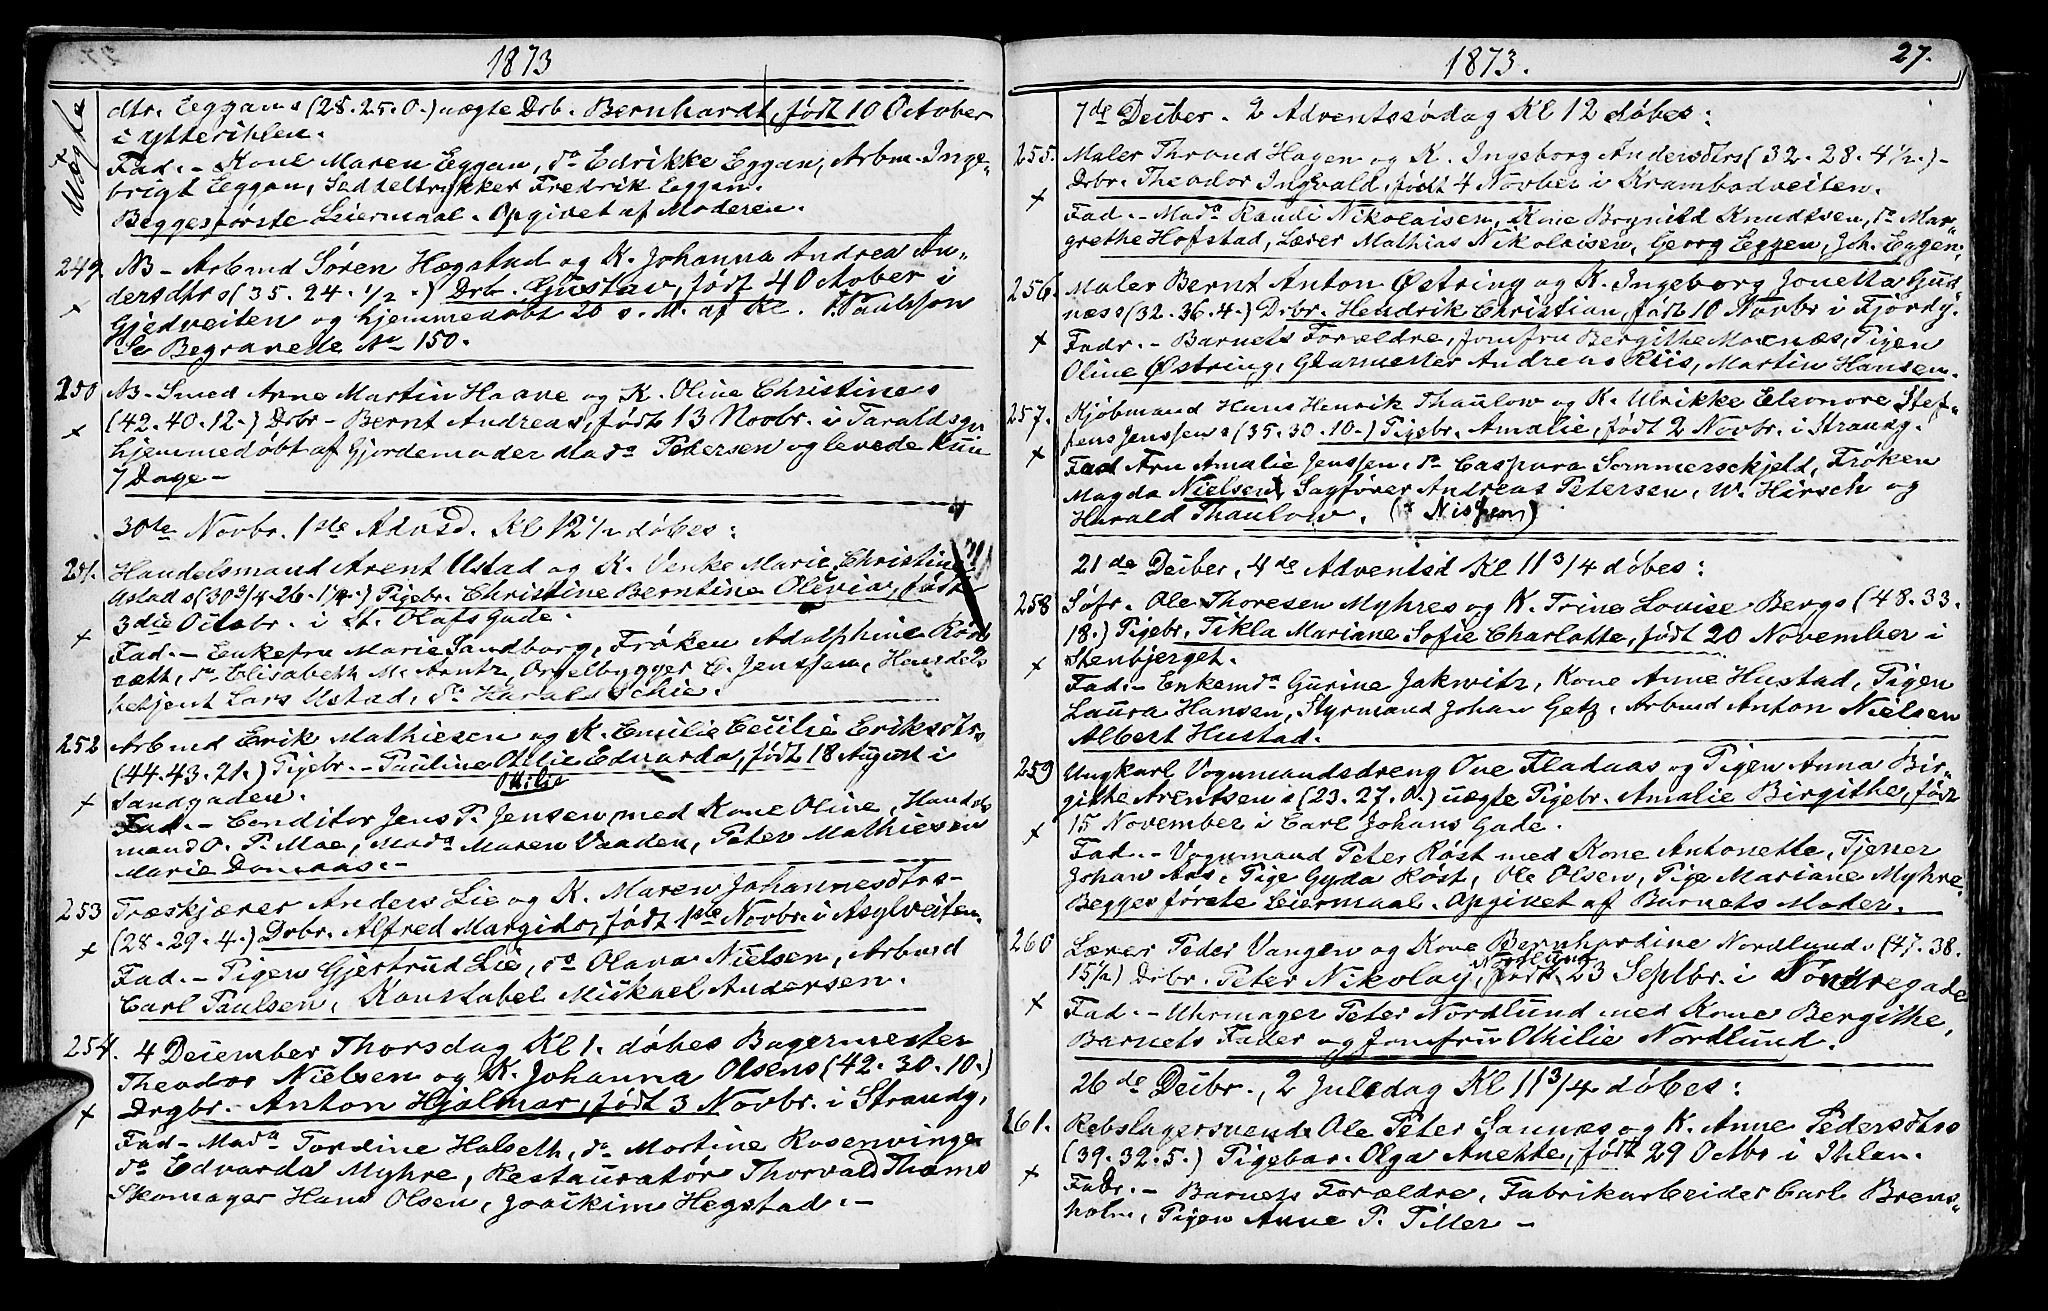 1873
Uægte
dtr. Eggans (28.25.0.) uægte Drb. Bernhardt, født 10 October
i Ytterihlen.
Fad. - Kone Maren Eggan, do Edrikke Eggan, Arbm. Inge"
brigt Eggan, Seddeltrykker Fredrik Eggan.
Begges første Leiermaal. Opgivet af Moderen.
249 NB - Arbmd Søren Hægstad og K. Johanna Andrea An"
dersdtrs (35.24.1/2.) Drb. Gustav, født 4 October i
Gjedveiten og hjemmedøbt 20 s. M. af Kl. P. Paulsson
Se Begravede No 150.
250 NB - Smed Arne Martin Haave og K. Oline Christines
(42.40.12.) Drbr - Bernt Andreas, født 13 Novbr. i Taraldsgr
hjemmedøbt af Gjordemoder Mada Pedersen og levede kun
7 Dage -
30te Novbr. 1ste Advsd. Kl 12 1/2 døbes:
251. Handelsmand Arent Ustad og K. Venke Marie Christine
Ustads (30 3/4.26.1 1/4.) Pigebr. Christine Berntine Olevia, født
3die Octobr. i St. Olafs Gade.
Fad. - Enkefru Marie Sandborg, Frøken Adolphine
do Elisabeth M. Arntz, Orgelbygger C. Jenssen, Handels
betjent Lars Ustad, do Harald Schie.
252 Arbmd Erik Mathiesen og K. Emilie Cecilie Eriksdtrs
(44.43.21.) Pigebr. - Pauline Othilie Edvarda, født 18 August i
Ottilie
Sandgaden.
Fad. - Conditor Jens P. Jensen med Kone Oline, Handels
mand O. P. Moe, Mada Maren Vaaden, Peter Mathiesen
Marie Domaas. -
253 Træskjærer Anders Lie og K. Maren Johannesdtrs -
(28.29.4.) Drbr. Alfred Margido, født 1ste Novbr. i Asylveiten.
Fad. - Pigen Gjertrud Lie, do Olava Nielsen, Arbmd
Carl Paulsen, Konstabel Mikkael Andersen.
254. 4 December Thorsdag Kl 1. døbes Bagermester
Theodor Nielsen og K. Johanna Olsens (42.30.10.)
Drgbr. - Anton Hjalmar, født 3 Novbr. i Strandg.
Fad - Mada Tordine Halseth, do Martine Rosenvinge
do Edvarda Myhre, Restauratør Thorvald Thams
Skomager Hans Olsen, Joakim Hegstad. -
1873.
27.
7de Decber. 2 Adventssødag Kl 12 døbes:
255. Maler Thrond Hagen og K. Ingeborg Andersdtrs (32.28.4 1/2.) -
Drbr. Theodor Ingvald, født 4 Novber i Krambodveiten.
Fad. - Mada Randi Nikolaisen, Kone Brynild Knudtsen, do Mar"
grethe Hofstad, Lærer Mathias Nikolaisen, Georg Eggen, Joh. Eggen.
256. Maler Bernt Anton Østring og K. Ingeborg Jonetta Gud"
næss (32.36.4.) Drbr. Hendrik Christian, født 10 Novbr i Fjordg.
Fadr. - Barnets Forældre, Jomfru Bergithe Moxnæs, Pigen
Oline Østring, Glarmester Andreas Riis, Martin Hansen.
257. Kjøbmand Hans Henrik Thaulow og K. Ulrikke Eleonore Stef"
fens Jenssens (35.30.10.) Pigebr. Amalie, født 2 Novbr. i Strandg.
Fad Fru Amalie Jenssen, do Caspara Sommerschjeld, Frøken
Magda Nielsen, Sagfører Andreas Petersen, W. Hirsch og
Harald Thaulow. (+ Nissen)
21de Decber, 4de Adventsd Kl 11 3/4 døbes:
258 Søfr. Ole Thoresen Myhres og K. Trine Lovise Bergs (48.33.
18.) Pigebr. Tikla Mariane Sofie Charlotte, født 20 November i
Stenbjerget.
Fad. - Enkemda Gurine Jakwitz, Kone Anne Hustad, Pigen
Laura Hansen, Styrmand Johan Getz, Arbmd Anton Nielsen
Albert Hustad.
259 Ungkarl Vognmandsdreng Ove Fladaas og Pigen Anna Bir"
githe Arentsens (23.27.0.) uægte Pigebr. Amalie Birgithe, født
15 November i Carl Johans Gade.
Fad. - Vognmand Peter Røst med Kone Antonette, Tjener
Johan Aas, Pige Gyda Røst, Ole Olsen, Pige Mariane Myhre.
Begges første Leiermaal. Opgivet af Barnets Moder.
260 Lærer Peder Vangen og Kone Bernhardine Nordlunds (47.38.
15 1/2) Drbr. Peter Nikolay, født 23 Septbr. i Søndregade
Nordlund
Fad. - Uhrmager Peter Nordlund med Kone Bergithe,
Barnets Fader og Jomfru Othilie Nordlund.
26de Decbr., 2 Juledag Kl 11 3/4 døbes:
261. Rebslagersvend Ole Peter Sannæs og K. Anne Pedersdtrs
(39.32.5.) Pigebar. Olga Anette, født 29 Octbr i Ihlen.
Fadr. - Barnets Forældre, Fabrikarbeider Carl Brens"
holm, Pigen Anne P. Tiller -